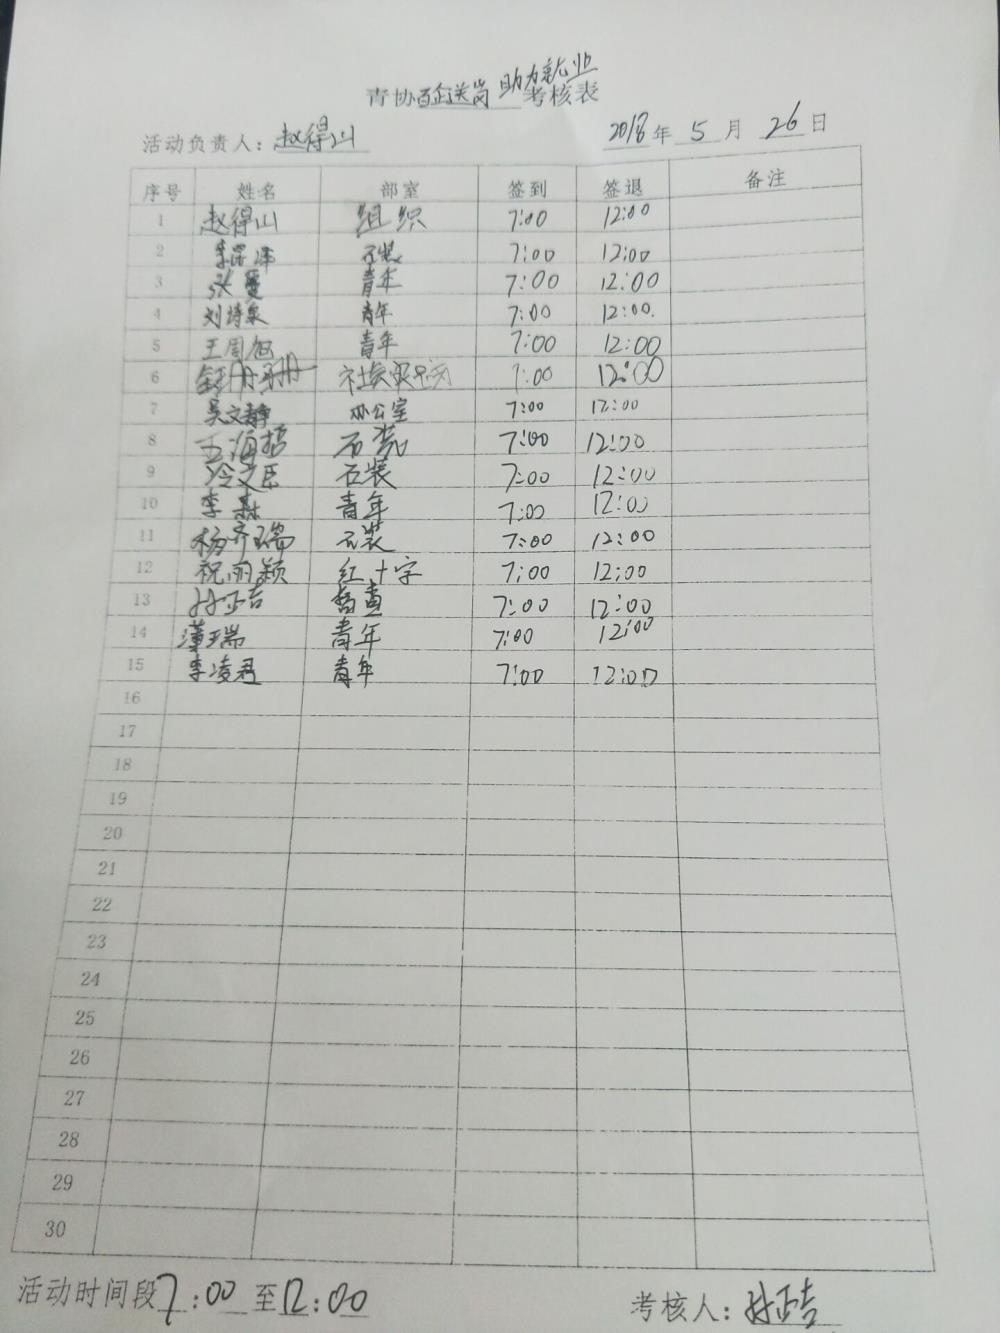 青协百企送岗助力就业考核表
活动负责人：赵得山 2018年5月26日
序号 姓名 部室 签到 签退 备注
1 赵得山 组织 7:00 12:00
2 7:00 12:00
3 张曼 青年 7:00 12:00
4 刘诗泉 青年 7:00 12:00.
5 王周 青年 7:00 12:00
6 7:00 12:00
7 吴文静 办公室 7:00 12:00
8 王海哲 7:00 12:00
9 冷文臣 石装 7:00 12:00
10 李 青年 7:00 12:00
11 杨齐瑞 石装 7:00 12:00
12 祝雨颖 红十字 7:00 12:00
13 孙正吉 7:00 12:00
14 瑞 青年 7:00 12:00
15 李凌君 青年 7:00 12:00
16
17
18
19
20
21
22
23
24
25
26
27
28
29
30
活动时间段7:00至12:00 考核人：孙正吉